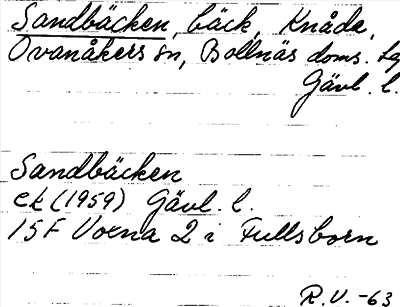 Sandbäcken, bäck, Knåda,
Ovanåkers sn, Bollnäs doms.
Gävl. l.
Sandbäcken
ek (1959) Gävl. l.
15F Voxna 2 i Fullsborn
R.V. -63